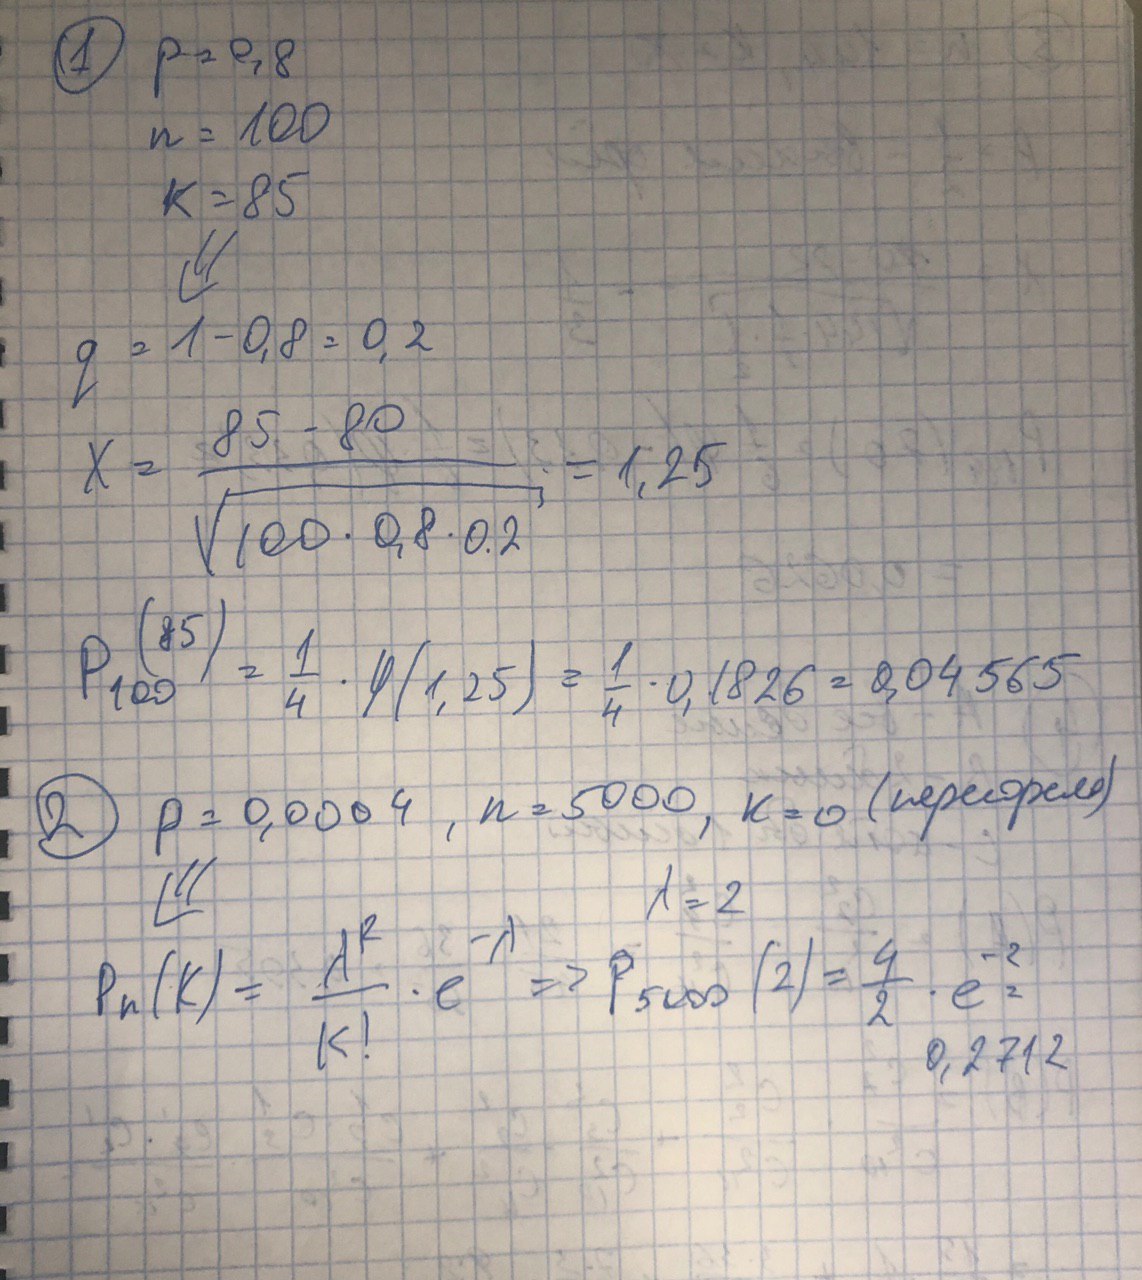 1 p = 0,8
n = 100
K = 85
⇓
q = 1 - 0,8 = 0,2
X = (85 - 80) / √(100 · 0,8 · 0.2) = 1,25
P₁₀₀(85) = 1/4 · φ(1,25) = 1/4 · 0,1826 = 0,04565
2 p = 0,0004, n = 5000, K = 0 (перегорело)
⇓ λ = 2
Pₙ(K) = λᴷ / K! · e^(-λ) => P₅₀₀₀(2) = 4/2 · e⁻² =
0,2712